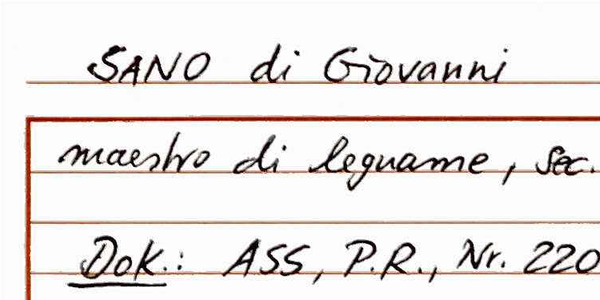 SANO di Giovanni
maestro di legname, sec.
Dok.: ASS, P.R., Nr. 220